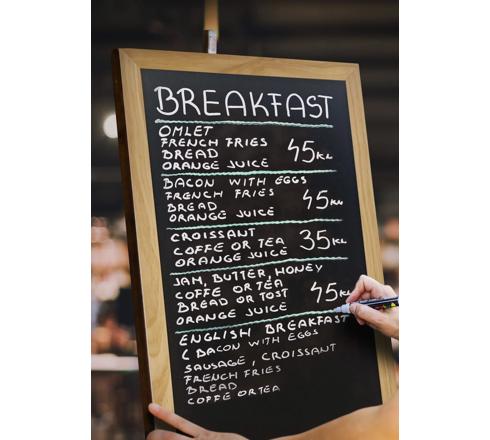 BREAKFAST
OMLET
FRENCH FRIES
BREAD
ORANGE JUICE 45KR
BACON WITH EGGS
FRENCH FRIES
BREAD
ORANGE JUICE 45KR
CROISSANT
COFFE OR TEA
ORANGE JUICE 35KR
JAM, BUTTER, HONEY
COFFE OR TEA
BREAD OR TOST
ORANGE JUICE 45KR
ENGLISH BREAKFAST
( BACON WITH EGGS
SAUSAGE, CROISSANT
FRENCH FRIES
BREAD
COFFE OR TEA